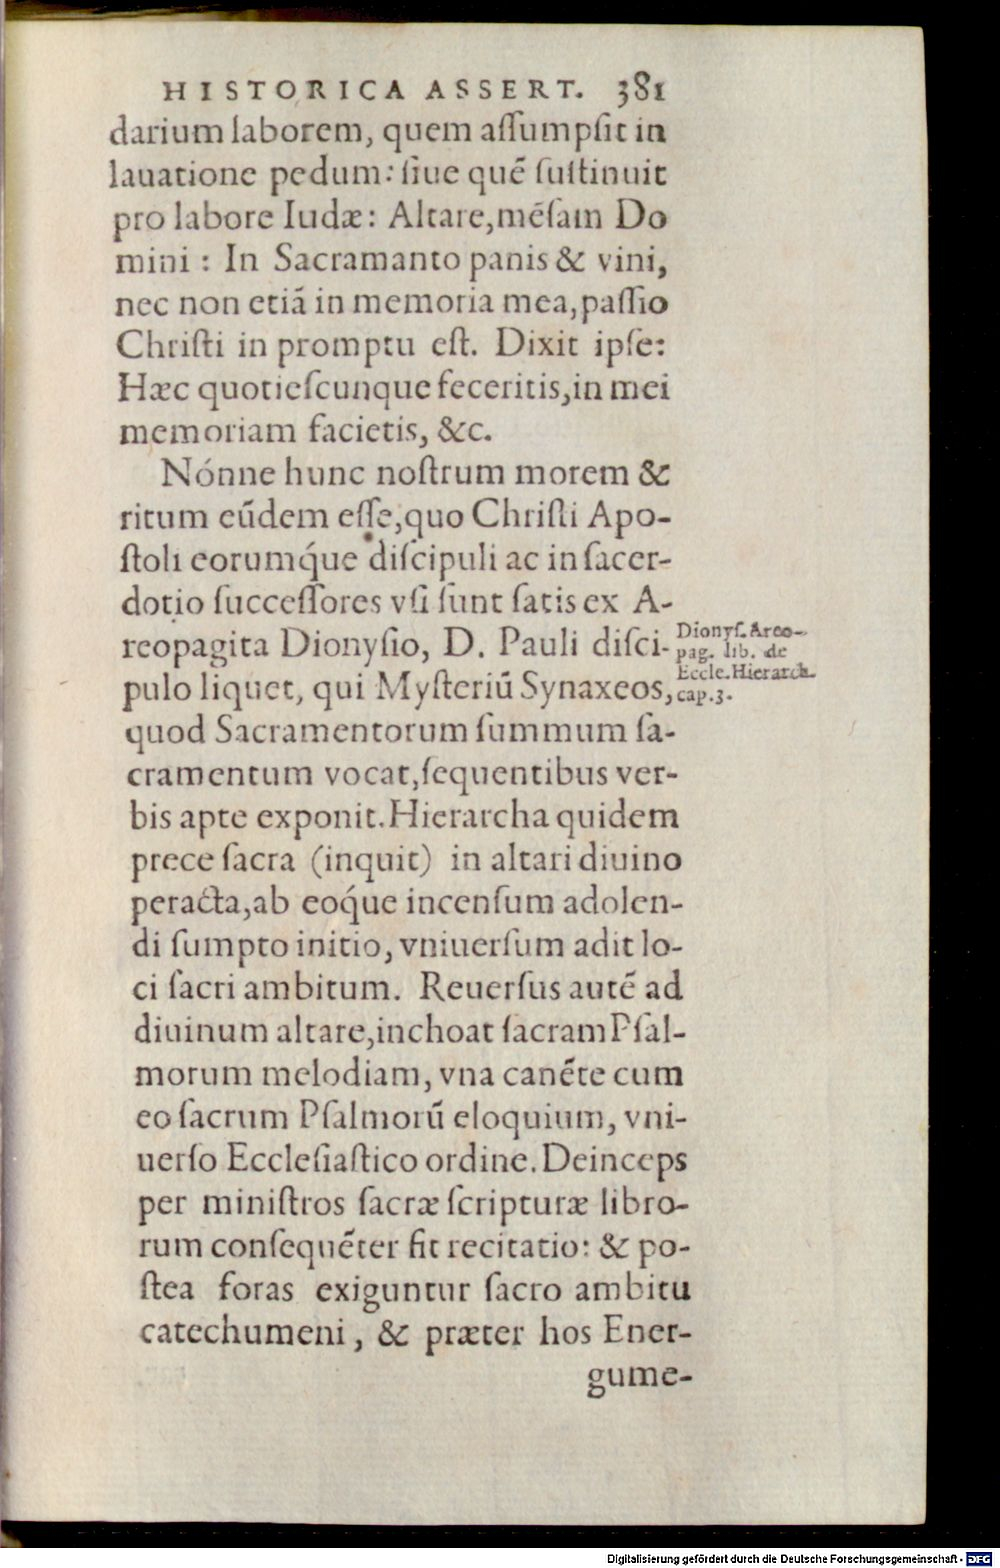 HISTORICA ASSERT. 381
darium laborem, quem aſſumpſit in
lauatione pedum: ſiue quẽ ſuſtinuit
pro labore Iudæ: Altare, mẽſam Do
mini : In Sacramanto panis & vini,
nec non etiã in memoria mea, paſſio
Chriſti in promptu eſt. Dixit ipſe:
Hæc quotieſcunque feceritis, in mei
memoriam facietis, &c.
Nónne hunc noſtrum morem &
ritum eũdem eſſe, quo Chriſti Apo-
ſtoli eorumq́ue diſcipuli ac in ſacer-
dotio ſucceſſores vſi ſunt ſatis ex A-
reopagita Dionyſio, D. Pauli diſci-
pulo liquet, qui Myſteriũ Synaxeos,
Dionyſ. Areo-
pag. lib. de
Eccle. Hierarch.
cap. 3.
quod Sacramentorum ſummum ſa-
cramentum vocat, ſequentibus ver-
bis apte exponit. Hierarcha quidem
prece ſacra (inquit) in altari diuino
peracta, ab eoq́ue incenſum adolen-
di ſumpto initio, vniuerſum adit lo-
ci ſacri ambitum. Reuerſus autẽ ad
diuinum altare, inchoat ſacram Pſal-
morum melodiam, vna canẽte cum
eo ſacrum Pſalmorũ eloquium, vni-
uerſo Eccleſiaſtico ordine. Deinceps
per miniſtros ſacræ ſcripturæ libro-
rum conſequẽter fit recitatio: & po-
ſtea foras exiguntur ſacro ambitu
catechumeni, & præter hos Ener-
gume-
Digitalisierung gefördert durch die Deutsche Forschungsgemeinschaft - DFG